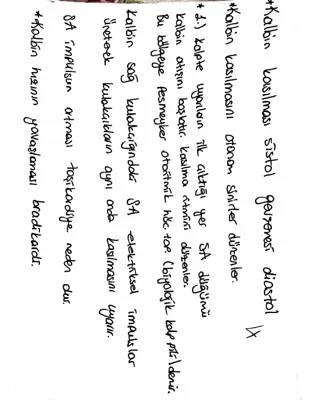 *Kalbin kasılması sistol gevşemesi diastol
*Kalbin kasılmasını otonom sinirler düzenler.
* 1.) Kalpte uyarıların ilk çıktığı yer SA düğümü
kalbin atışını başlatır kasılma ritmini düzenler.
Bu bölgeye Pesmeyker otoritmik hüc. top. (biyolojik kalp pili) denir.
Kalbin sağ kulakçığındaki SA elektriksel impulslar
üreterek kulakçıkların aynı anda kasılmasını uyarır.
SA impulsun artması taşikardiye neden olur.
*Kalbin hızının yavaşlaması bradikardi.